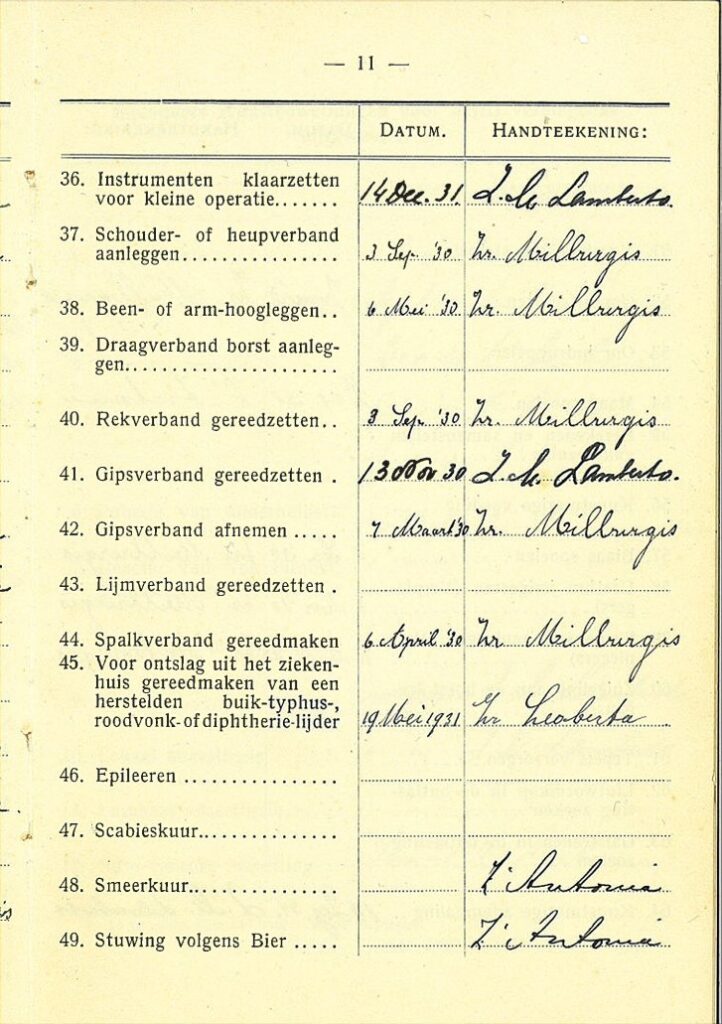 — 11 —
DATUM. HANDTEEKENING:
36. Instrumenten klaarzetten
voor kleine operatie....... 14 Dec. 31. Z. M. Lamberto.
37. Schouder- of heupverband
aanleggen............... 3 Sep. '30 Zr. Millburgis
38. Been- of arm-hoogleggen.. 6 Mei '30 Zr. Millburgis
39. Draagverband borst aanleg-
gen.....................
40. Rekverband gereedzetten.. 3 Sep. '30 Zr. Millburgis
41. Gipsverband gereedzetten . 13 Nov 30 Z. M. Lamberto.
42. Gipsverband afnemen ..... 7 Maart '30 Zr. Millburgis
43. Lijmverband gereedzetten .
44. Spalkverband gereedmaken 6 April '30 Zr Millburgis
45. Voor ontslag uit het zieken-
huis gereedmaken van een
herstelden buik-typhus-,
roodvonk- of diphtherie-lijder 19 Mei 1931 Zr Leoberta
46. Epileeren ...............
47. Scabieskuur..............
48. Smeerkuur............... Zr Antonia
49. Stuwing volgens Bier ..... Zr Antonia